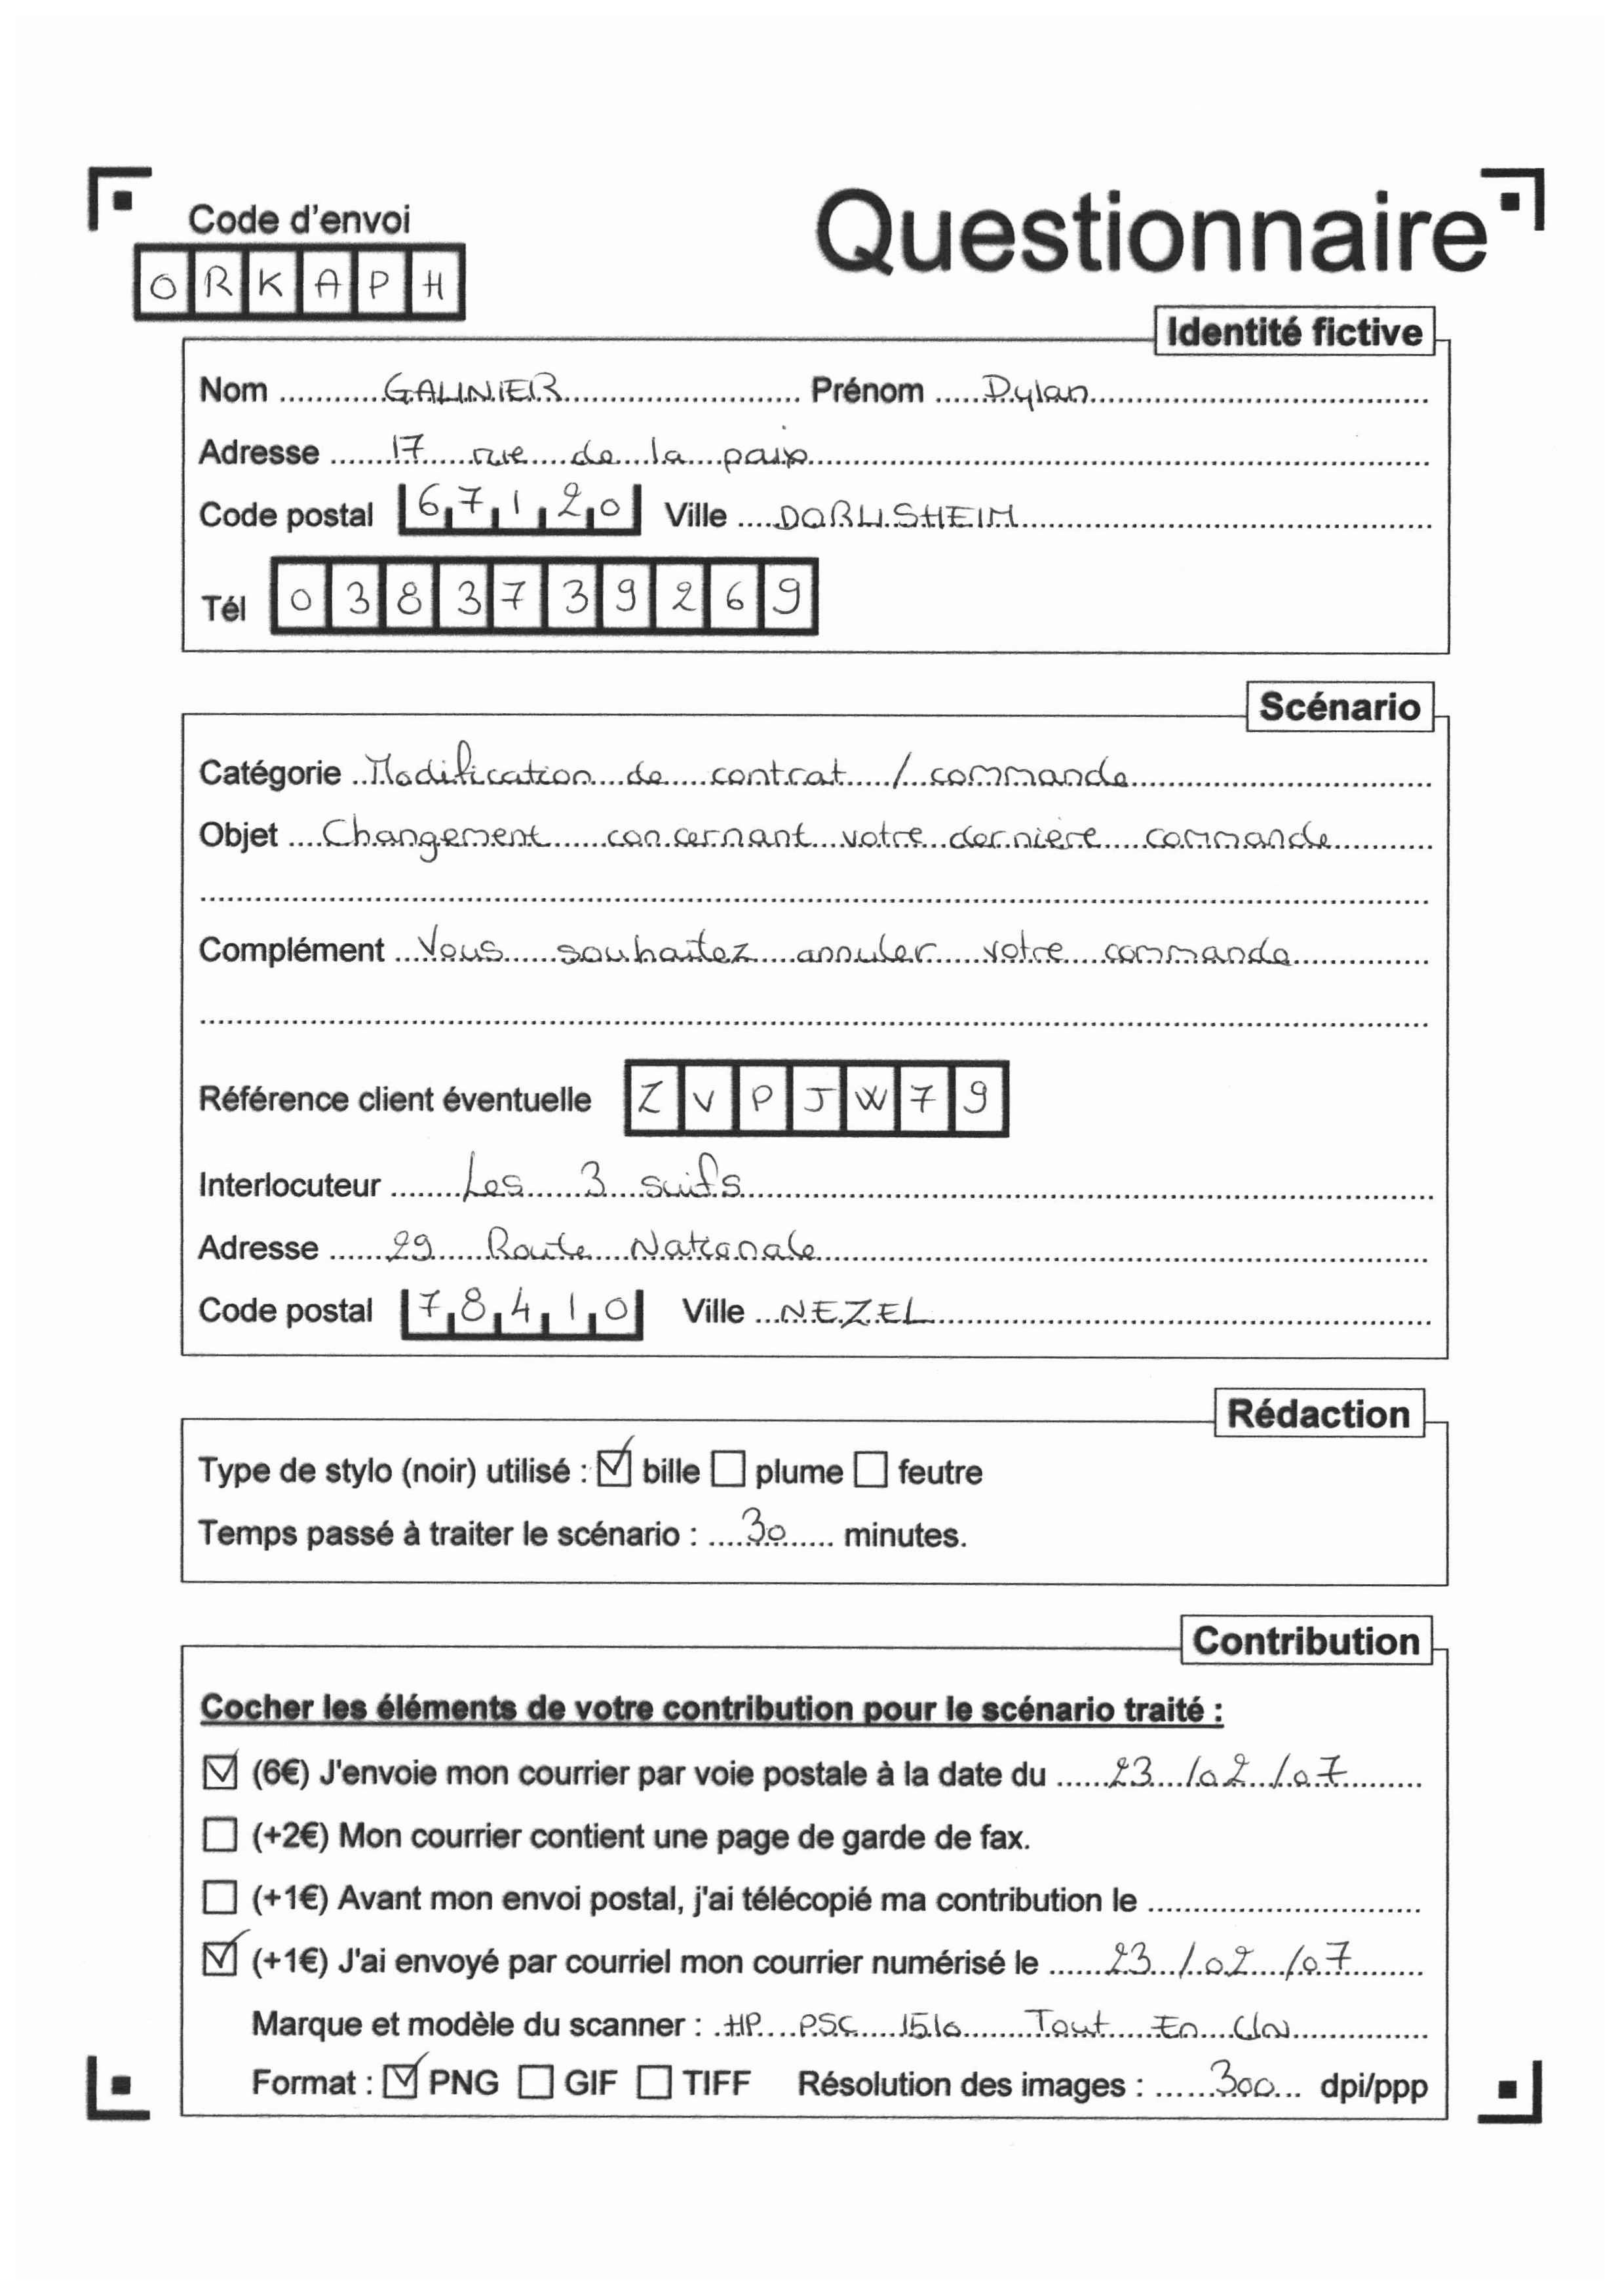 Code d'envoi
Questionnaire
O R K A P H
Identité fictive
Nom GALINIER Prénom Dylan
Adresse 17 rue de la paix
Code postal 67120 Ville DORLISHEIM
Tél 0383739269
Scénario
Catégorie Modification de contrat / commande
Objet Changement concernant votre dernière commande
Complément Vous souhaitez annuler votre commande
Référence client éventuelle Z V P J W 7 9
Interlocuteur Les 3 suifs
Adresse 29 Route Nationale
Code postal 78410 Ville NEZEL
Rédaction
Type de stylo (noir) utilisé : bille plume feutre
Temps passé à traiter le scénario : 30 minutes.
Contribution
Cocher les éléments de votre contribution pour le scénario traité :
(6€) J'envoie mon courrier par voie postale à la date du 23/02/07
(+2€) Mon courrier contient une page de garde de fax.
(+1€) Avant mon envoi postal, j'ai télécopié ma contribution le
(+1€) J'ai envoyé par courriel mon courrier numérisé le 23/02/07
Marque et modèle du scanner : HP PSC 1510 Tout En Un
Format : PNG GIF TIFF Résolution des images : 300 dpi/ppp